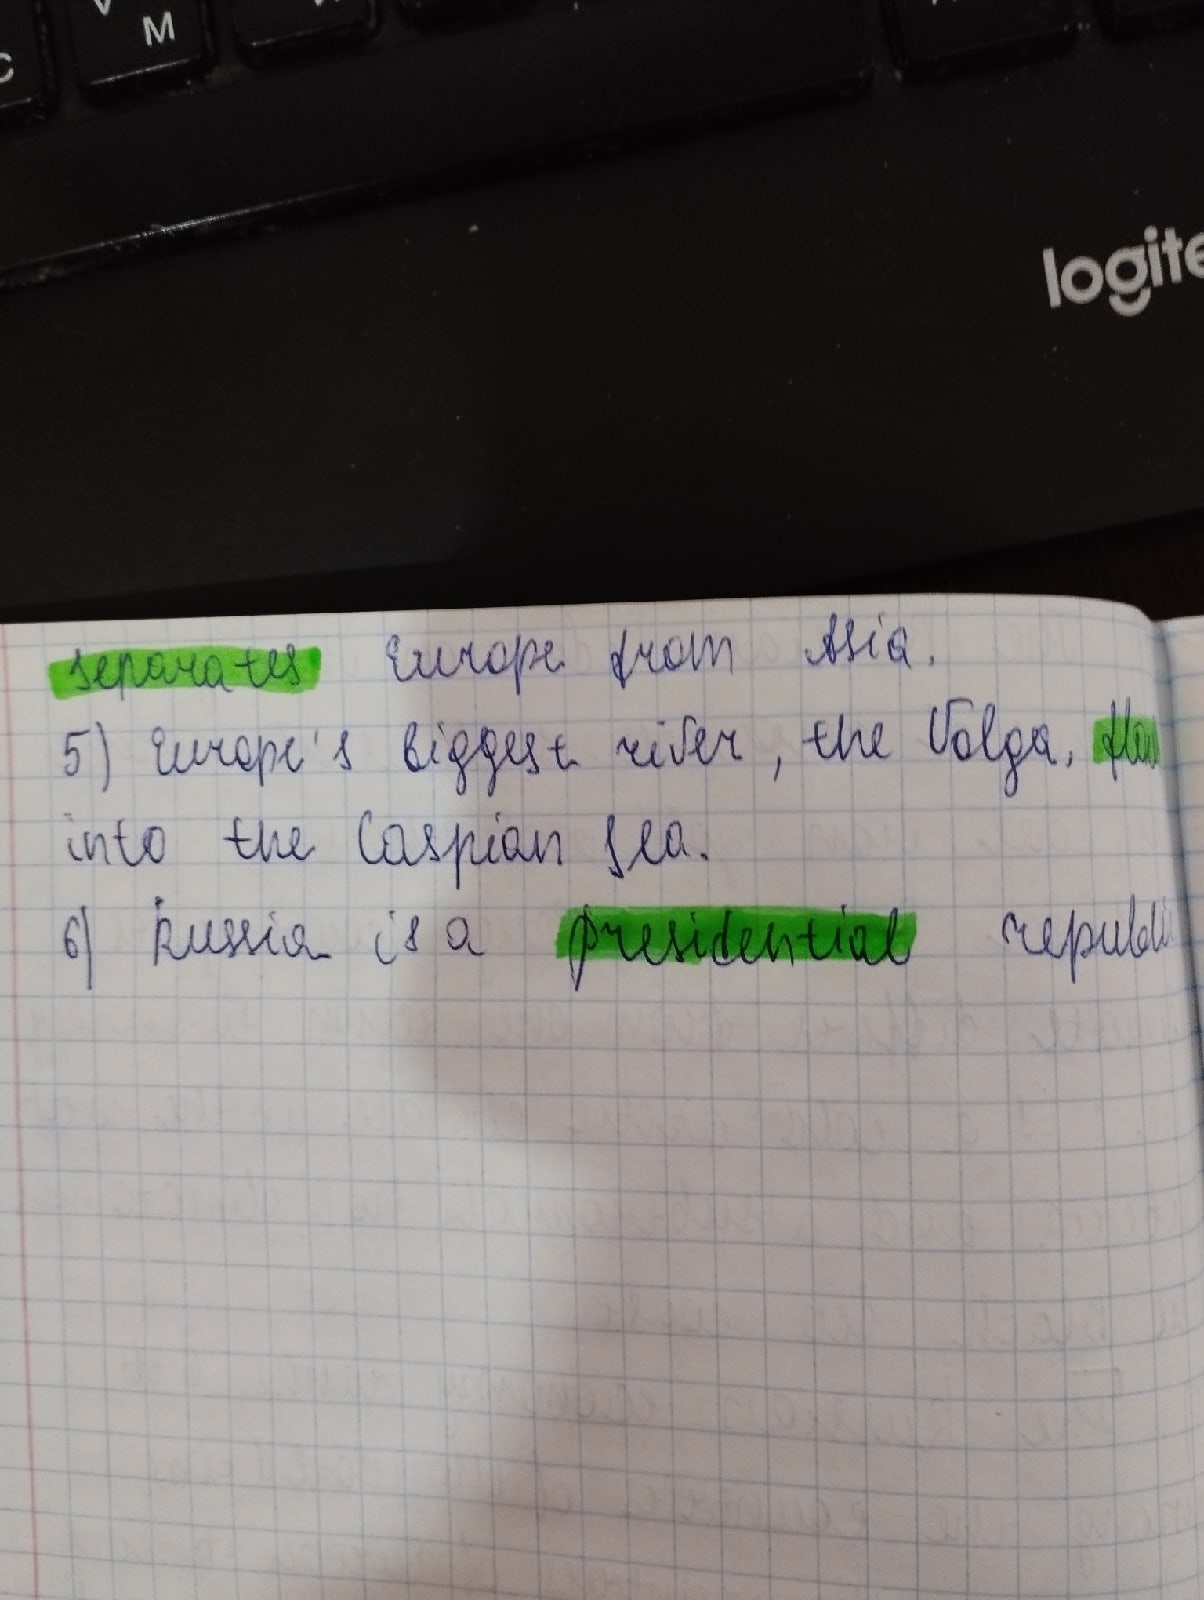 M
C
logite
separates Europe from Asia.
5) Europe's biggest river, the Volga,
into the Caspian Sea.
6) Russia is a presidential republi